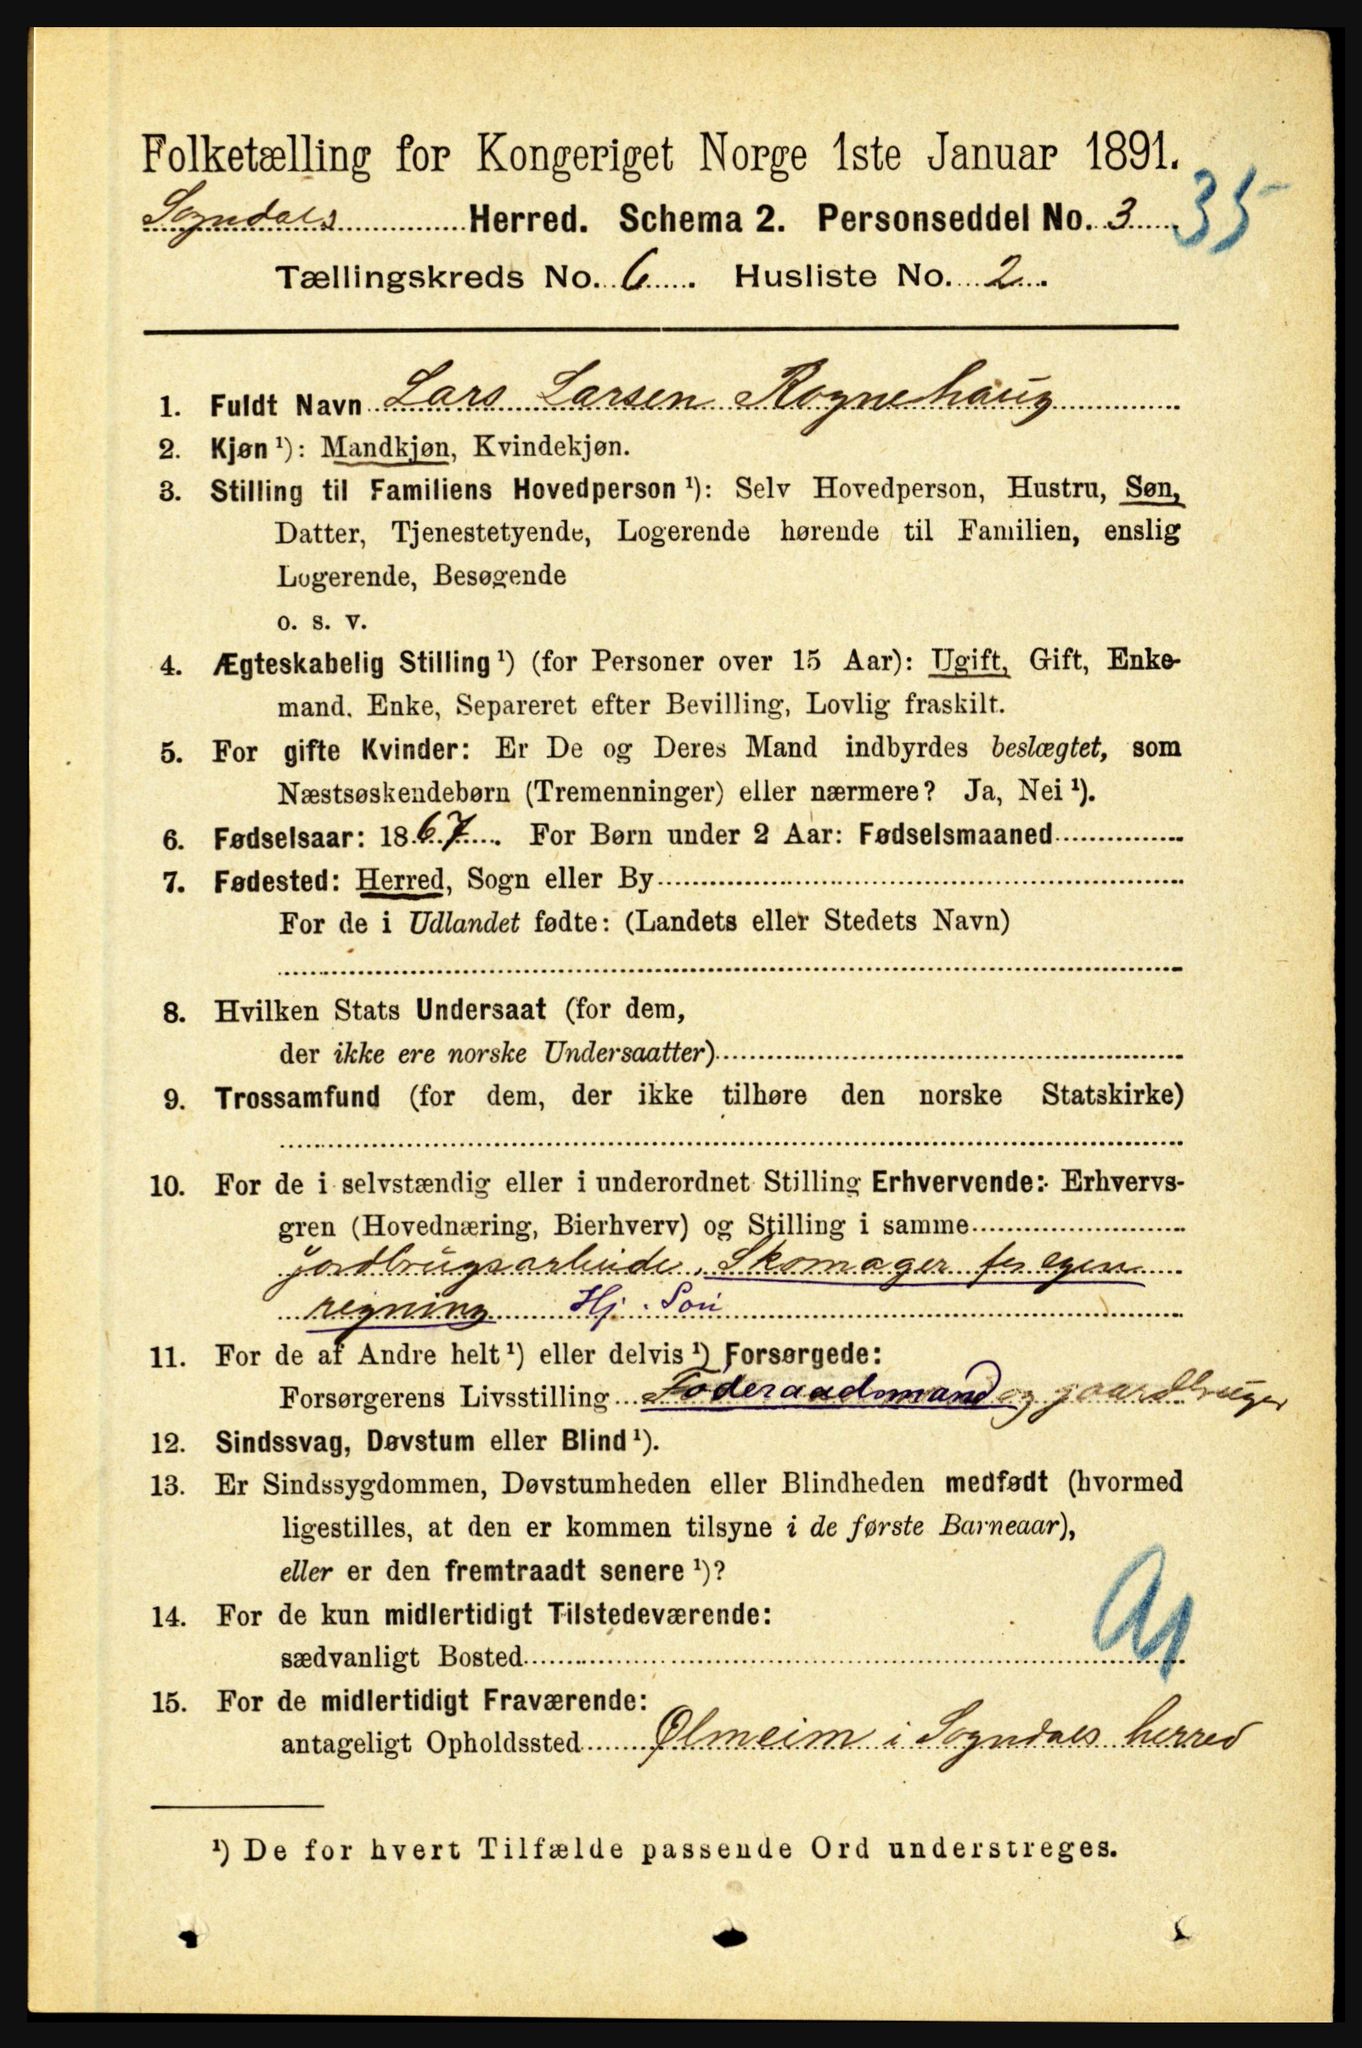 Folketælling for Kongeriget Norge 1ste Januar 1891.
35
Sogndals Herred. Schema 2. Personseddel No. 3
Tællingskreds No. 6. Husliste No. 2.
1. Fuldt Navn Lars Larsen Rognehaug
2. Kjøn ¹): Mandkjøn, Kvindekjøn.
3. Stilling til Familiens Hovedperson ¹): Selv Hovedperson, Hustru, Søn,
Datter, Tjenestetyende, Logerende hørende til Familien, enslig
Logerende, Besøgende
o. s. v.
4. Ægteskabelig Stilling ¹) (for Personer over 15 Aar): Ugift, Gift, Enke-
mand. Enke, Separeret efter Bevilling, Lovlig fraskilt.
5. For gifte Kvinder: Er De og Deres Mand indbyrdes beslægtet, som
Næstsøskendebørn (Tremenninger) eller nærmere? Ja, Nei ¹).
6. Fødselsaar: 1867. For Børn under 2 Aar: Fødselsmaaned
7. Fødested: Herred, Sogn eller By
For de i Udlandet fødte: (Landets eller Stedets Navn)
8. Hvilken Stats Undersaat (for dem,
der ikke ere norske Undersaatter)
9. Trossamfund (for dem, der ikke tilhøre den norske Statskirke)
10. For de i selvstændig eller i underordnet Stilling Erhvervende: Erhvervs-
gren (Hovednæring, Bierhverv) og Stilling i samme
jordbrugsarbeide, Skomager for egen
regning Hj. Søn
11. For de af Andre helt ¹) eller delvis ¹) Forsørgede:
Forsørgerens Livsstilling Føderaadsmand og gaardbruger
12. Sindssvag, Døvstum eller Blind ¹).
13. Er Sindssygdommen, Døvstumheden eller Blindheden medfødt (hvormed
ligestilles, at den er kommen tilsyne i de første Barneaar),
eller er den fremtraadt senere ¹)?
14. For de kun midlertidigt Tilstedeværende:
sædvanligt Bosted
15. For de midlertidigt Fraværende:
antageligt Opholdssted Ølmeim i Sogndals herred
¹) De for hvert Tilfælde passende Ord understreges.